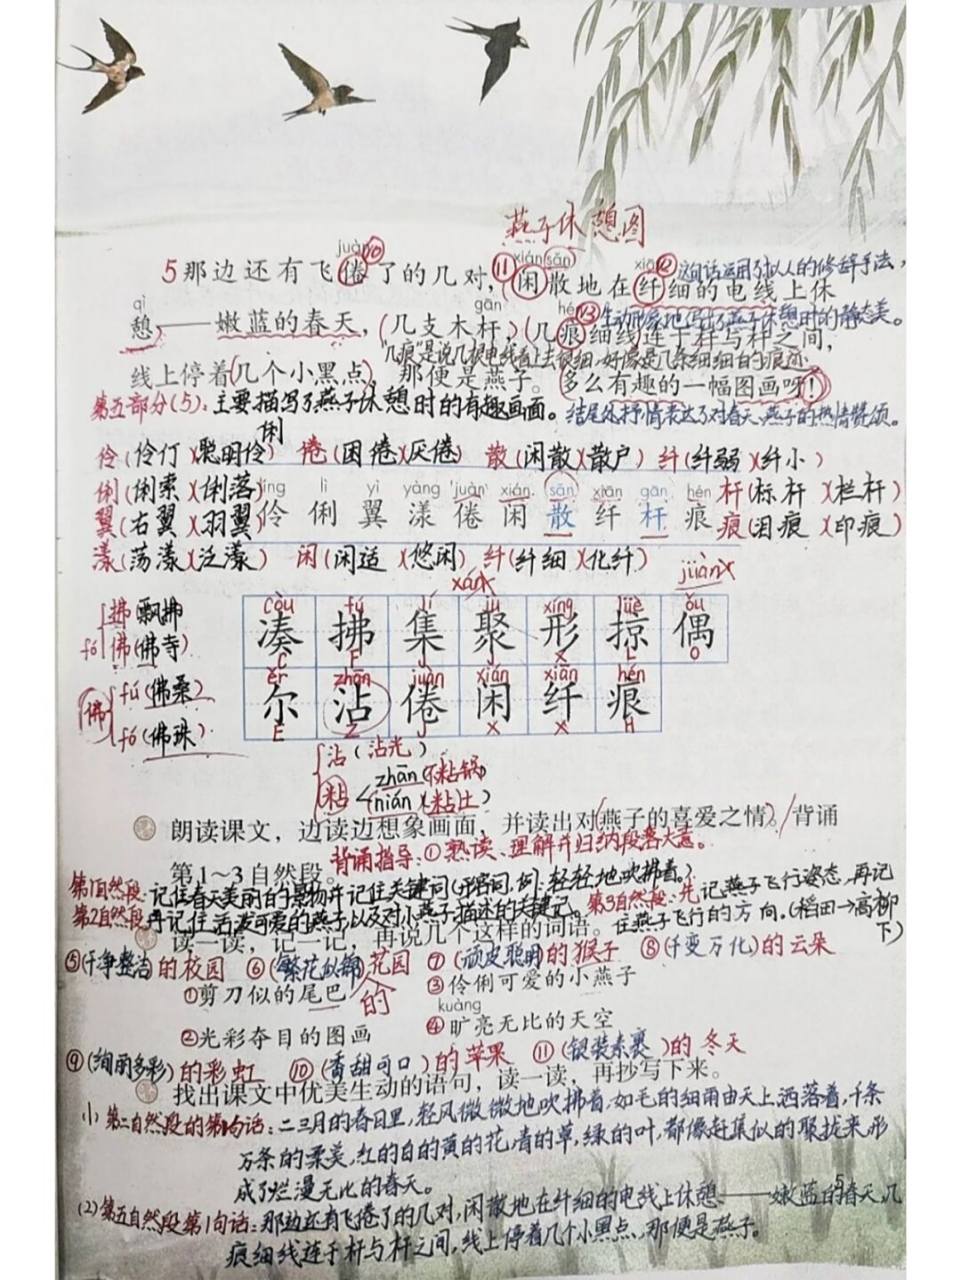 燕子休憩图
juàn ⑩ xián sǎn xiān
5那边还有飞倦了的几对,⑪闲散地在纤细的电线上休
⑫这句话运用了拟人的修辞手法,
qì gān hén
憩,——嫩蓝的春天,(几支木杆),(几痕细线连于杆与杆之间,
⑬生动形象地写出了燕子休憩时的静态美。
"几痕"是说几根电线看上去很细,好像是几条细细的痕迹
线上停着(几个小黑点),那便是燕子。(多么有趣的一幅图画呀!)
第五部分(5):主要描写了燕子休憩时的有趣画面。 结尾处抒情表达了对春天、燕子的热情赞颂。
俐
伶(伶仃)(聪明伶) 倦(困倦)(厌倦) 散(闲散)(散户) 纤(纤弱)(纤小)
俐(俐索)(俐落) líng lì yì yàng juàn xián sǎn xiān gān hén 杆(标杆)(栏杆)
翼(右翼)(羽翼) 伶 俐 翼 漾 倦 闲 散 纤 杆 痕 痕(泪痕)(印痕)
漾(荡漾)(泛漾) 闲(闲适)(悠闲) 纤(纤细)(化纤)
còu fú jí jù xíng lüè ǒu
凑 拂 集 聚 形 掠 偶
C F J J X L O
ěr zhān juàn xián xiān hén
尔 沾 倦 闲 纤 痕
E Z J X X H
拂(飘拂
fó 佛(佛寺)
佛 fú(佛桑)
fó(佛珠)
沾(沾光)
粘 zhān(不粘锅)
nián(粘土)
朗读课文,边读边想象画面,并读出对燕子的喜爱之情。背诵
第1~3自然段。
背诵指导:①熟读、理解并归纳段落大意。
第1自然段:记住春天美丽的景物并记住关键词(形容词,例:轻轻地吹拂着。) 第3自然段:先记燕子飞行姿态,再记
住燕子飞行的方向。(稻田→高柳下)
读一读,记一记,再说几个这样的词语。
⑤(干净整洁)的校园 ⑥(繁花似锦)的花园 ⑦(顽皮聪明)的猴子 ⑧(千变万化)的云朵
①剪刀似的尾巴 ③伶俐可爱的小燕子
kuàng
②光彩夺目的图画 ④旷亮无比的天空
⑨(绚丽多彩)的彩虹 ⑩(香甜可口)的苹果 ⑪(银装素裹)的冬天
找出课文中优美生动的语句,读一读,再抄写下来。
(1)第二自然段的第1句话:二三月的春日里,轻风微微地吹拂着,如毛的细雨由天上洒落着,千条
万条的柔美,红的白的黄的花,青的草,绿的叶,都像赶集似的聚拢来,形
成了烂漫无比的春天。
(2)第五自然段第1句话:那边还有飞倦了的几对,闲散地在纤细的电线上休憩——嫩蓝的春天,几
痕细线连于杆与杆之间,线上停着几个小黑点,那便是燕子。